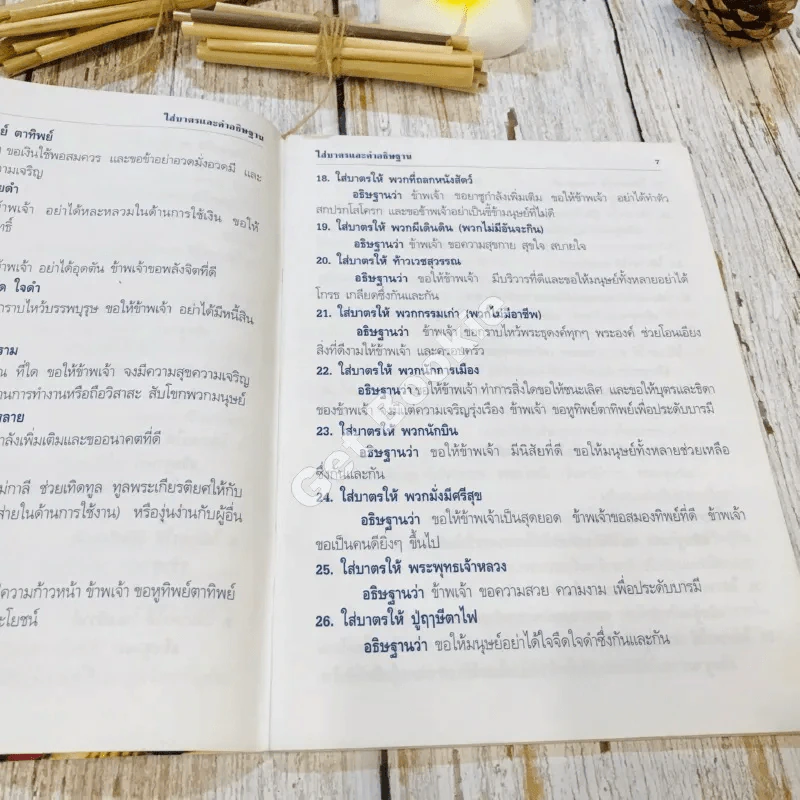 ใส่บาตรและคำอธิษฐาน
ย์ ตาทิพย์
ขอเงินใช้พอสมควร และขอข้าอย่าอวดมั่งอวดมี และ
ามเจริญ
ยดำ
ข้าพเจ้า อย่าได้หละหลวมในด้านการใช้เงิน ขอให้
ข้าพเจ้า อย่าได้อุดตัน ข้าพเจ้าขอพลังจิตที่ดี
ด ใจดำ
กราบไหว้บรรพบุรุษ ขอให้ข้าพเจ้า อย่าได้มีหนี้สิน
ราม
ณ ที่ใด ขอให้ข้าพเจ้า จงมีความสุขความเจริญ
านการทำงานหรือถือวิสาสะ สับโขกพวกมนุษย์
รลาย
ำลังเพิ่มเติมและขออนาคตที่ดี
ม่กาลี ช่วยเทิดทูล ทูลพระเกียรติยศให้กับ
ส่ายในด้านการใช้งาน) หรืองุ่นง่านกับผู้อื่น
ีความก้าวหน้า ข้าพเจ้า ขอหูทิพย์ตาทิพย์
ะโยชน์
ใส่บาตรและคำอธิษฐาน 7
18. ใส่บาตรให้ พวกที่ถลกหนังสัตว์
อธิษฐานว่า ข้าพเจ้า ขอยาชูกำลังเพิ่มเติม ขอให้ข้าพเจ้า อย่าได้ทำตัว
สกปรกโสโครก และขอข้าพเจ้าอย่าเป็นขี้ข้ามนุษย์ที่ไม่ดี
19. ใส่บาตรให้ พวกผีเดินดิน (พวกไม่มีอันจะกิน)
อธิษฐานว่า ข้าพเจ้า ขอความสุขกาย สุขใจ สบายใจ
20. ใส่บาตรให้ ท้าวเวชสุวรรณ
อธิษฐานว่า ขอให้ข้าพเจ้า มีบริวารที่ดีและขอให้มนุษย์ทั้งหลายอย่าได้
โกรธ เกลียดซึ่งกันและกัน
21. ใส่บาตรให้ พวกกรรมเก่า (พวกไม่มีอาชีพ)
อธิษฐานว่า ข้าพเจ้า ขอกราบไหว้พระธุดงค์ทุกๆ พระองค์ ช่วยโอนเอียง
สิ่งที่ดีงามให้ข้าพเจ้า และครอบครัว
22. ใส่บาตรให้ พวกนักการเมือง
อธิษฐานว่า ขอให้ข้าพเจ้า ทำการสิ่งใดขอให้ชนะเลิศ และขอให้บุตรและธิดา
ของข้าพเจ้า จงมีแต่ความเจริญรุ่งเรือง ข้าพเจ้า ขอหูทิพย์ตาทิพย์เพื่อประดับบารมี
23. ใส่บาตรให้ พวกนักบิน
อธิษฐานว่า ขอให้ข้าพเจ้า มีนิสัยที่ดี ขอให้มนุษย์ทั้งหลายช่วยเหลือ
ซึ่งกันและกัน
24. ใส่บาตรให้ พวกมั่งมีศรีสุข
อธิษฐานว่า ขอให้ข้าพเจ้าเป็นสุดยอด ข้าพเจ้าขอสมองทิพย์ที่ดี ข้าพเจ้า
ขอเป็นคนดียิ่งๆ ขึ้นไป
25. ใส่บาตรให้ พระพุทธเจ้าหลวง
อธิษฐานว่า ข้าพเจ้า ขอความสวย ความงาม เพื่อประดับบารมี
26. ใส่บาตรให้ ปู่ฤๅษีตาไฟ
อธิษฐานว่า ขอให้มนุษย์อย่าได้ใจจืดใจดำซึ่งกันและกัน